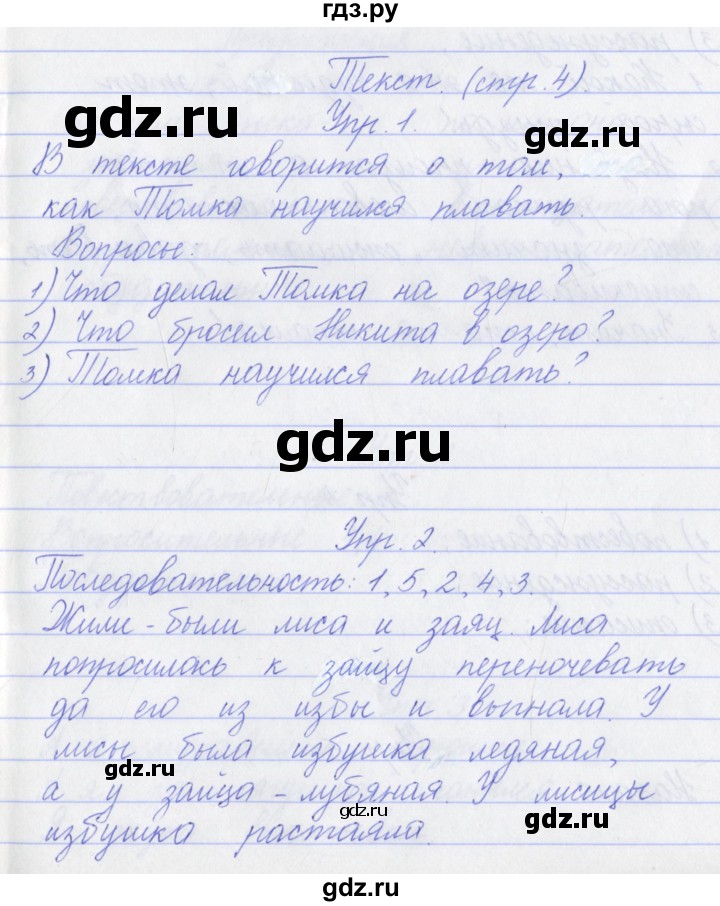 гдз.ру
Текст. (стр. 4)
Упр. 1.
В тексте говорится о том,
как Томка научился плавать.
Вопросы:
1) Что делал Томка на озере?
2) Что бросил Никита в озеро?
3) Томка научился плавать?
gdz.ru
gdz.ru
gdz.ru
Упр. 2.
Последовательность: 1, 5, 2, 4, 3.
Жили-были лиса и заяц. Лиса
попросилась к зайцу переночевать
да его из избы и выгнала. У
лисы была избушка ледяная,
gdz.ru
а у зайца - лубяная. У лисицы
gdz.ru
избушка растаяла.
gdz.ru